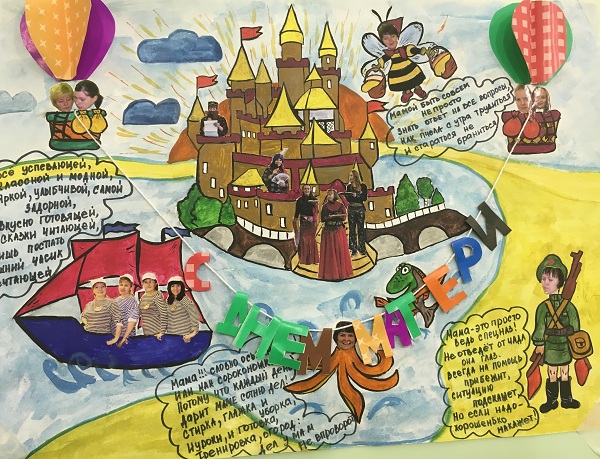 Мамой быть совсем
не просто
Знать ответ на все вопросы,
Как пчела с утра трудиться
и стараться не
браниться
всё успевающей,
классной и модной,
яркой, улыбчивой, самой
задорной,
вкусно готовящей,
сказки читающей,
лишь поспать
лишний часик
мечтающей
С ДНЕМ МАТЕРИ
Мама - это просто
ведь спецназ!
Не отведёт от чада
она глаз.
Всегда на помощь
прибежит,
ситуацию
подскажет,
Но если надо-
хорошенько
накажет!
Мама!!! словно
или как сороконожка
Потому что каждый день
дарит маме сотню дел!
Стирка, глажка и
уборка,
и уроки, и готовка,
тренировка, огород!
дел у мам
не вправоро